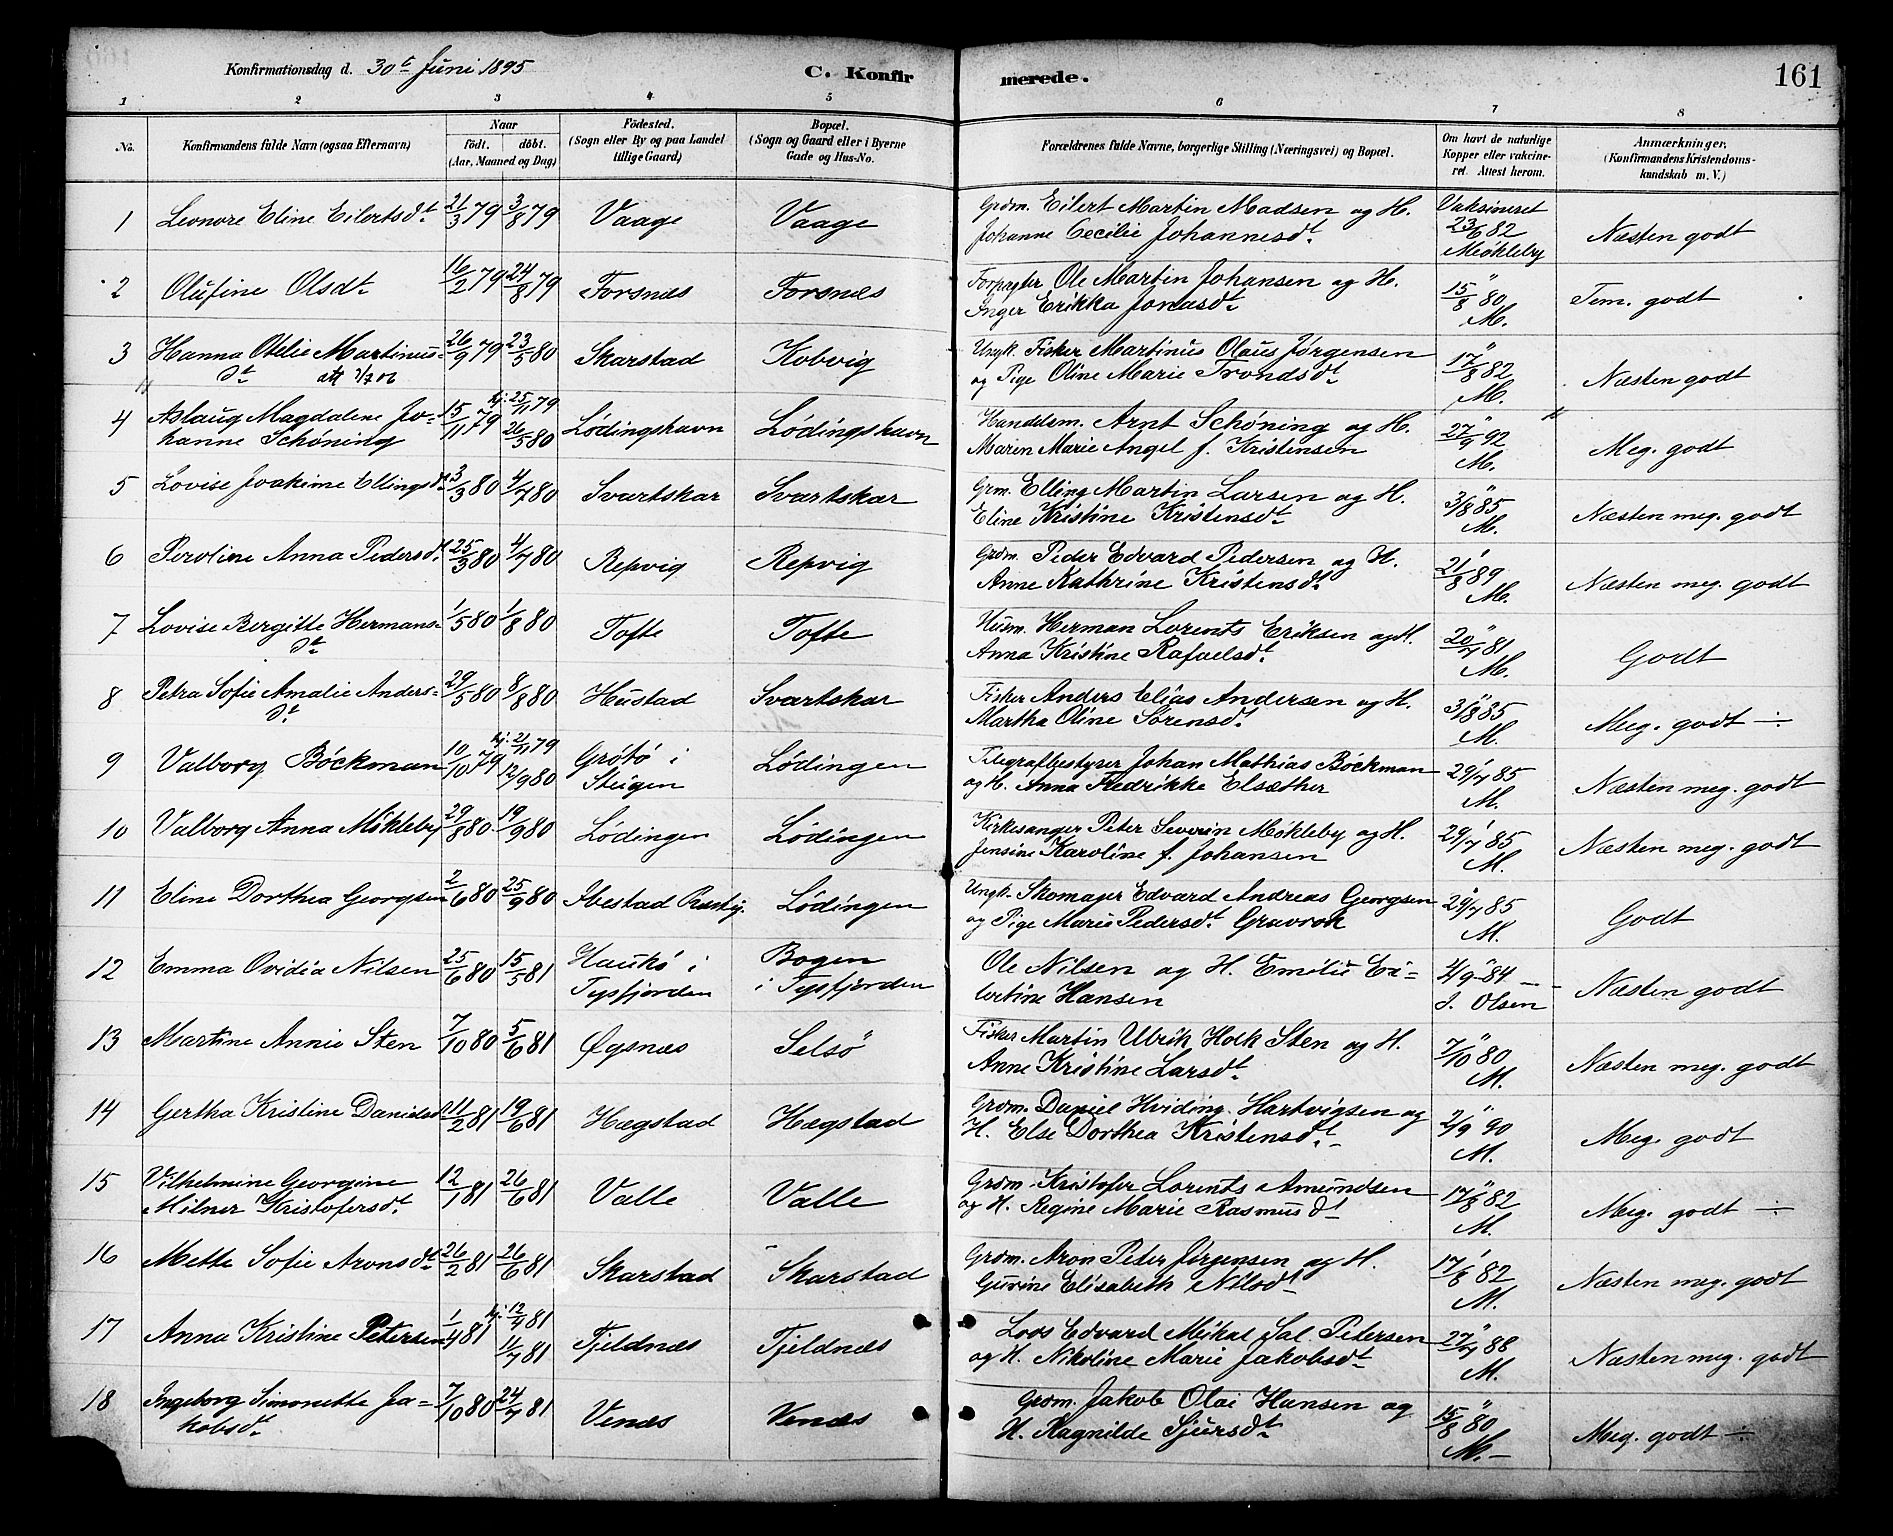 Konfirmationsdag d. 30te Juni 1895 C. Konfirmerede. 161
1 2 3 4 5 6 7 8
No. Konfirmandens fulde Navn (ogsaa Efternavn) Naar Födt. döbt. (Aar, Maaned og Dag) Födested. (Sogn eller By og paa Landet tillige Gaard) Bopæl. (Sogn og Gaard eller i Byerne Gade og Hus-No. Forældrenes fulde Navne, borgerlige Stilling (Næringsvei) og Bopæl. Om havt de naturlige Kopper eller vakcineret. Attest herom. Anmærkninger. (Konfirmandens Kristendomskundskab m. V.)
1 Leonore Eline Eilertsdt 21/3 79 3/8 79 Vaage Vaage Grdm. Eilert Martin Madsen og H. Vaksineret
Johanne Cecilie Johannesdt. 23/6 82 Møkleby Næsten godt
2 Olufine Olsdt 16/2 79 24/8 79 Forsnæs Forsnæs Forpagter Ole Martin Johansen og H. 15/8 80 Tem. godt
Inger Erikka Jonasdt M.
3 Hanna Otelie Martinus- 26/9 79 23/5 80 Skarstad Kobvig Ungk. Fisker Martinus Olaus Jørgensen 17/8 82 Næsten godt
dt att 7/7 06 og Pige Oline Marie Trondsdt M.
4 Aslaug Magdalene Jo- 15/11 79 hj. 25/11 79 Lødingshavn Lødingshavn Handelsm. Arnt Schøning og H. 27/9 92 Meg. godt
hanne Schøning 26/5 80 Maren Marie Angel f. Kristensen M.
5 Lovise Joakime Ellingsdt 3/3 80 4/7 80 Svartskar Svartskar Grm. Elling Martin Larsen og H. 3/8 85 Næsten meg. godt
Eline Kristine Kristensdt M.
6 Peroline Anna Pedersdt. 25/3 80 4/7 80 Repvig Repvig Grdm. Peder Edvard Pedersen og H. 21/8 89 Næsten meg. godt
Anne Kathrine Kristensdt M.
7 Lovise Bergitte Hermans- 1/5 80 1/8 80 Tofte Tofte Husm. Herman Lorents Eriksen og H. 20/7 81 Godt
dt Anna Kristine Rafaelsdt. M.
8 Petra Sofie Amalie Anders- 29/5 80 8/8 80 Hustad Svartskar Fisker Anders Elias Andersen og H. 3/8 85 Meg. godt ÷
dt. Martha Oline Sørensdt M.
9 Valborg Böckman 10/10 79 hj. 21/11 79 Grøtö i Lödingen Telegrafbestyrer Johan Mathias Böckman 29/7 85 Næsten meg. godt
12/9 80 Steigen og H. Anna Fredrikke Elsæther M.
10 Valborg Anna Møkleby 29/8 80 19/9 80 Lödingen Lödingen Kirkesanger Peter Severin Møkleby og H. 29/7 85 Næsten meg. godt
Jensine Karoline f. Johansen M.
11 Eline Dorthea Georgsen 2/6 80 25/9 80 Ibestad Præstg. Lödingen Ungk. Skomager Edvard Andreas Georgsen 29/7 85 Godt
og Pige Marie Pedersdt. Gravrok M.
12 Emma Ovidia Nilsen 25/6 80 15/5 81 Haukö i Bogen Ole Nilsen og H. Emilie Ei- 4/9 84 Næsten godt
Tysfjorden i Tysfjorden lertine Hansen J. Olsen
13 Martine Annie Sten 7/10 80 5/6 81 Øgsnæs Selsö Fisker Martin Ulrik Holk Sten og H. 7/10 80 Næsten meg. godt
Anne Kristine Larsdt. M.
14 Gertha Kristine Danielsdt 11/2 81 19/6 81 Hægstad Hægstad Grdm. Daniel Hviding Hartvigsen og 2/9 90 Meg. godt
H. Else Dorthea Kristensdt. M.
15 Vilhelmine Georgine 12/1 81 26/6 81 Valle Valle Grdm. Kristofer Lorents Amundsen 17/8 82 Meg. godt ÷
Milner Kristofersdt. og H. Regine Marie Rasmusdt M.
16 Mette Sofie Aronsdt 26/2 81 26/6 81 Skarstad Skarstad Grdm. Aron Peter Jørgensen og H. 17/8 82 Næsten meg. godt
Gurine Elisabeth Nilsdt M.
17 Anna Kristine Petersen 1/4 81 hj. 12/4 81 Fjeldnæs Fjeldnæs Lods Edvard Mikal Sal. Petersen 27/7 88 Næsten meg. godt
11/7 81 og H. Nikoline Marie Jakobsdt M.
18 Ingeborg Simonette Ja- 7/10 80 24/7 81 Venæs Venæs Grdm. Jakob Olai Hansen og 15/8 80 Meg. godt ÷
kobsdt. H. Ragnilde Sjursdt M.